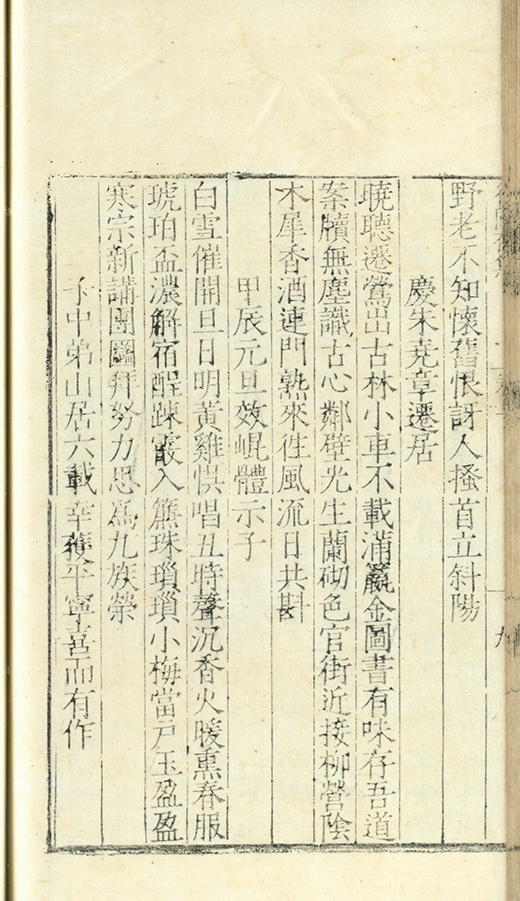 野老不知懷舊恨訝人搔首立斜陽
慶朱堯章遷居
曉聽遷鶯出古林小車不載滿籯金圖書有味存吾道
案牘無塵識古心鄰壁光生蘭砌色官街近接柳營陰
木犀香酒連門熟來往風流日共斟
甲辰元旦效崐體示子
白雪催開旦日明黃雞惧唱丑時聲沉香火暖熏春服
琥珀盃濃解宿酲踈霞入簾珠瑣瑣小梅當戶玉盈盈
寒宗新講團圞拜努力思為九族榮
中弟山居六載幸獲平寧喜而有作
九